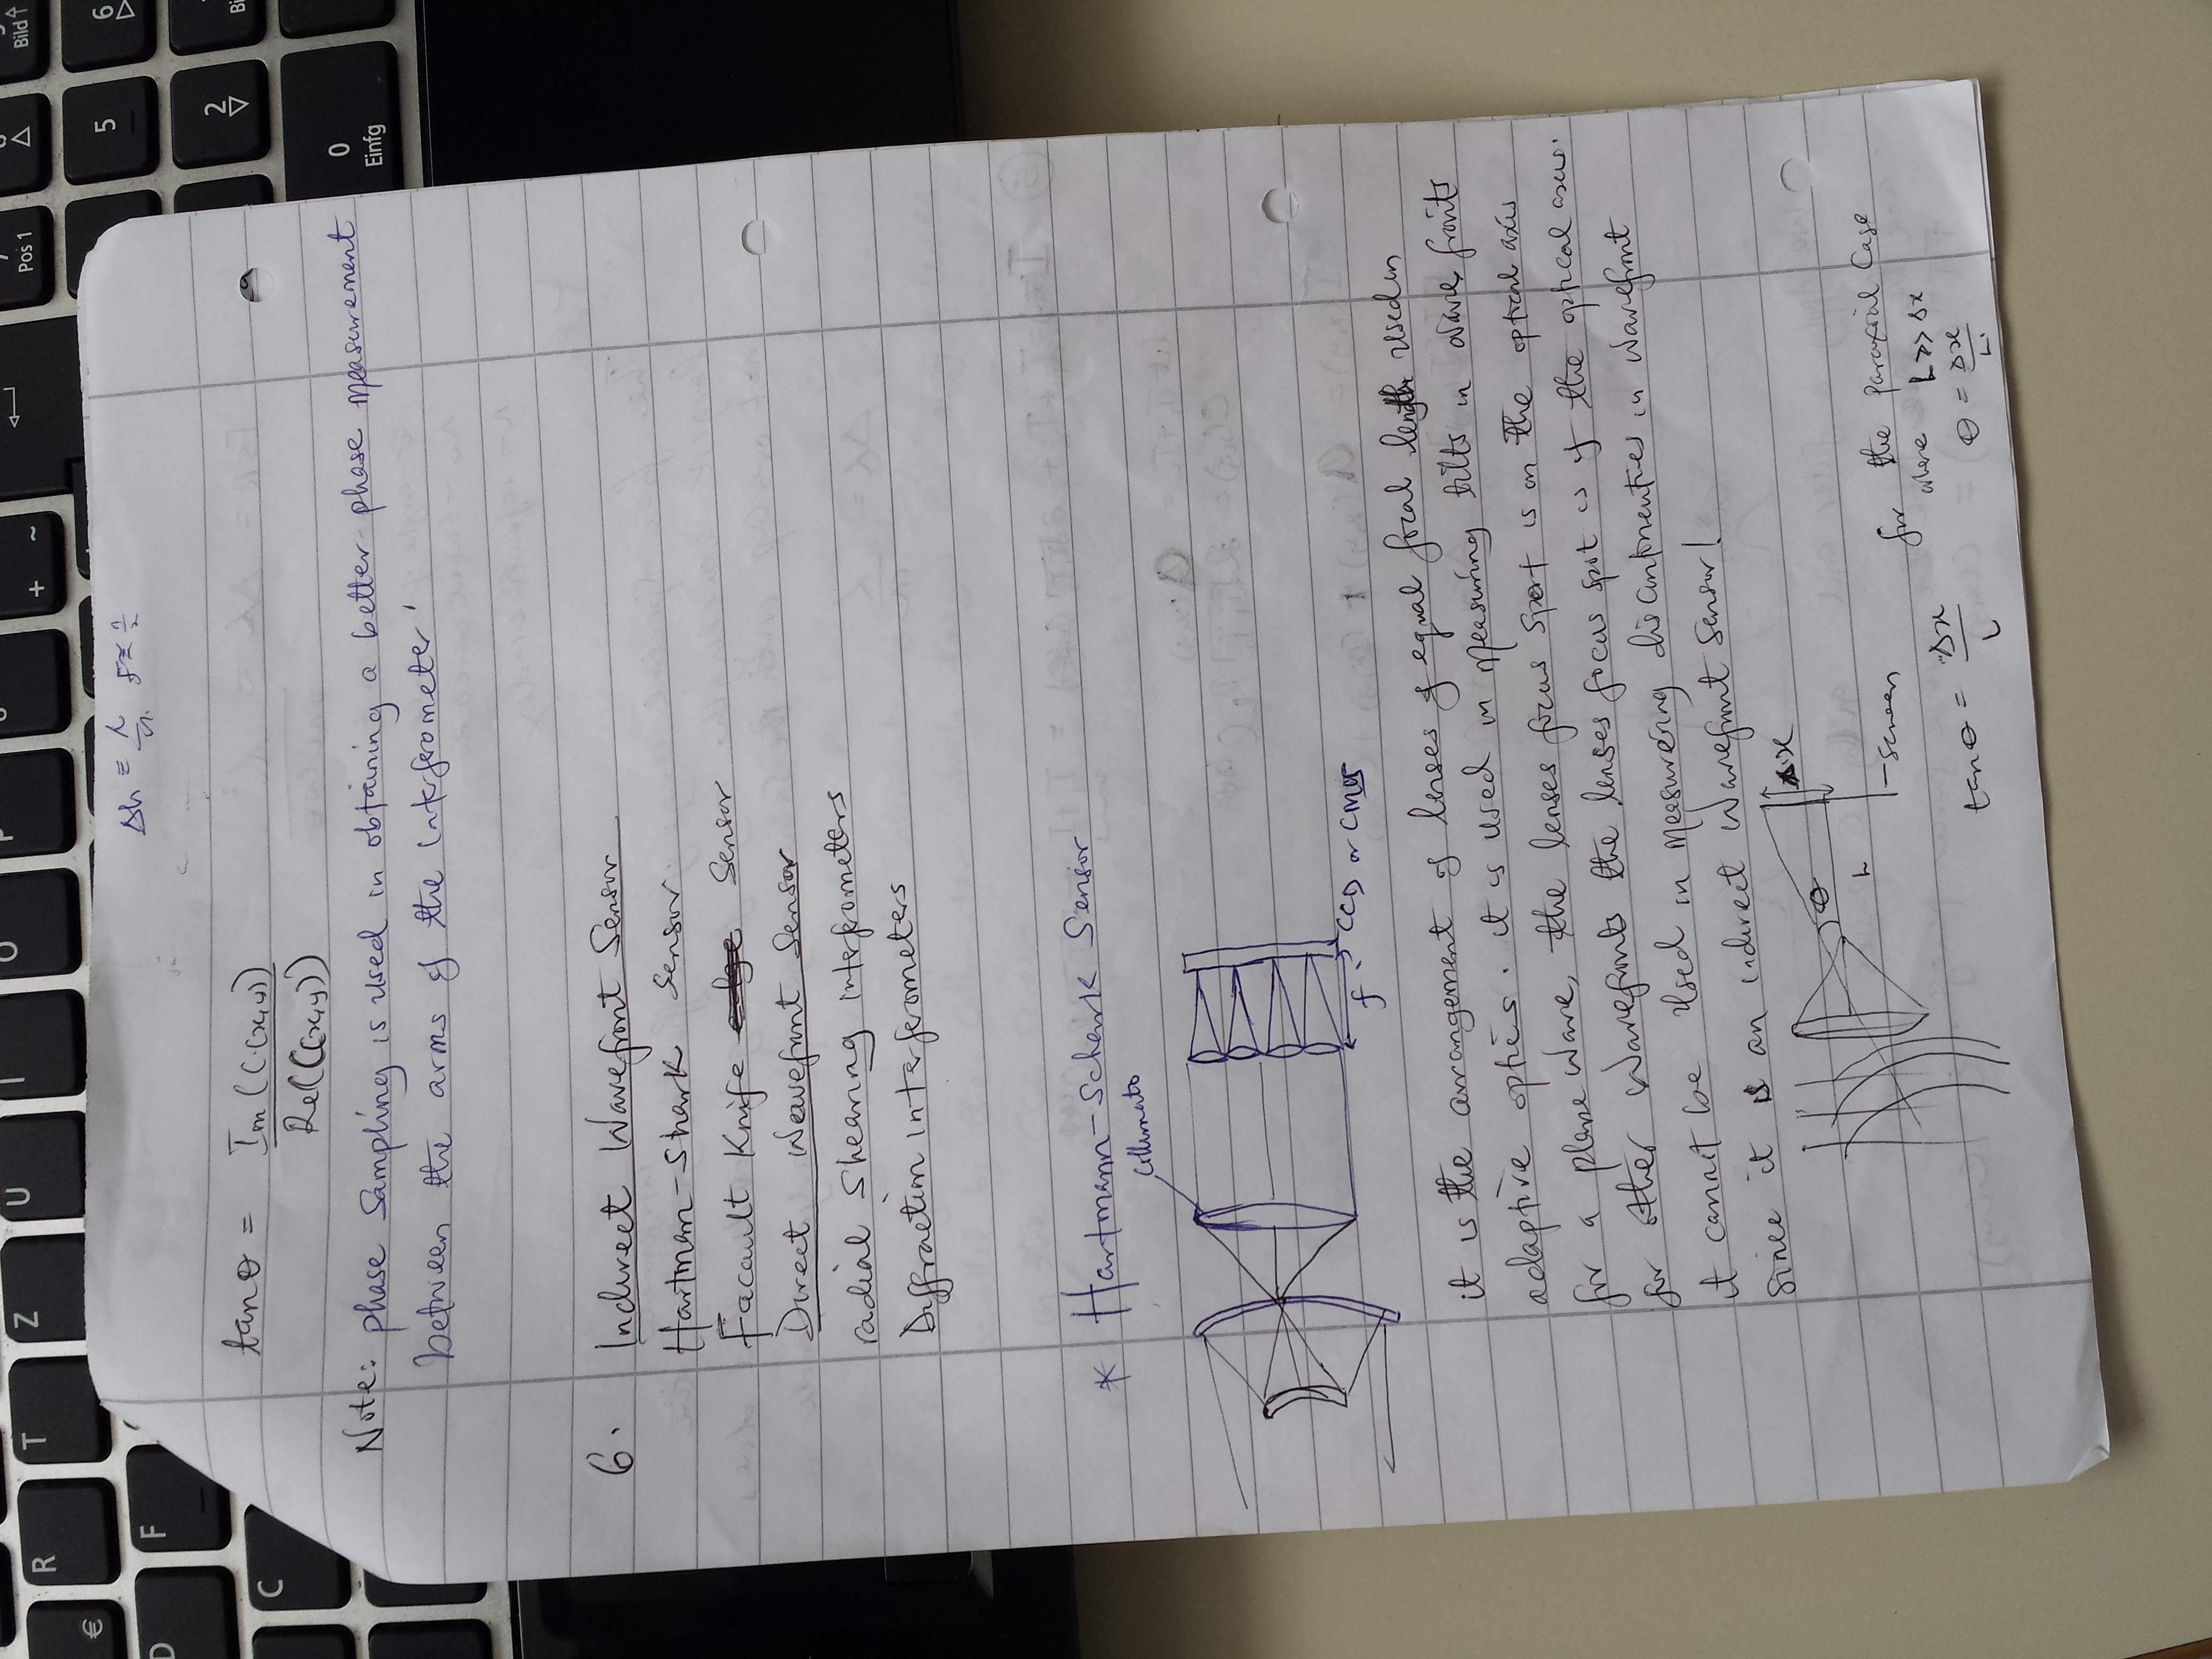 Δh = λ/n
tanθ = Im(C(x,y)) / Re(C(x,y))
Note: phase Sampling is used in obtaining a better phase measurement
between the arms of the interferometer'
6. Indirect Wavefront Sensor
Hartman-Shark Sensor
Facault Knife Sensor
Direct Wavefront Sensor
radial Shearing interferometers
Diffraction interferometers
* Hartmann-Schenrk Sensor
Collimato
f
CCD or CMOS
it is the arrangement of lenses of equal focal length used in
adaptive optics. it is used in measuring tilts in wave fronts
for a plane wave, the lenses focus spot is on the optical axis
for other wavefronts the lenses focus spot is of the optical axis.
it cannot be used in measuring discontinuities in wavefront
Since it is an indirect wavefront sensor!
Δx
θ
L
screen
for the paraxial Case
where L>>Δx
tanθ = Δx/L
θ = Δx/L
Bild
6
5
2
0
Einfg
Pos 1
+
~
P
O
I
U
Z
T
R
€
F
D
C